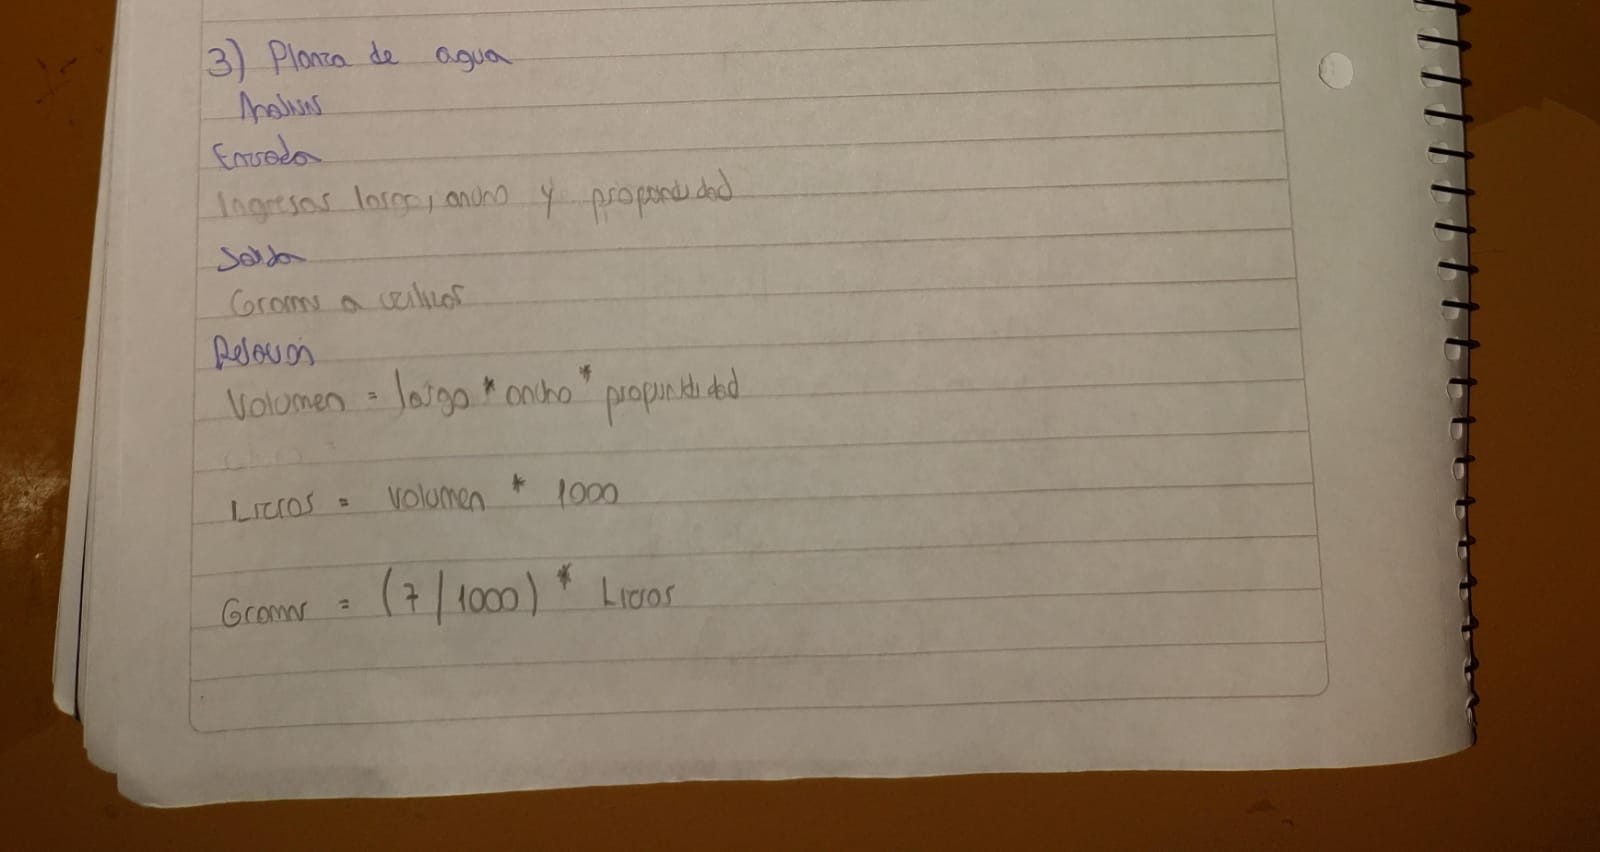 3) Planta de agua
Analisis
Entrada
Ingresar largo, ancho y profundidad
Salida
Gramos a utilizar
Relacion
Volumen = largo * ancho * profundidad
Litros = Volumen * 1000
Gramos = (7/1000) * Litros